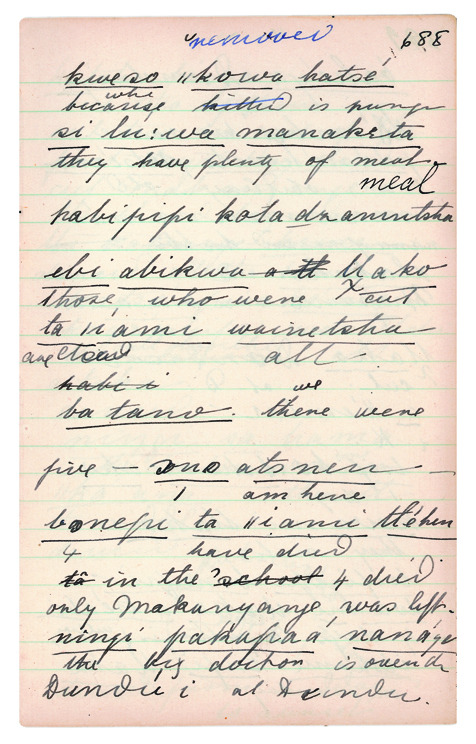 removed 688
kweso ǁkowa hatsé
who
because is nungu
si lu:wa manaketa
they have plenty of meat
meal
habi pipi kota dzamutsha
ebi abikwa a Mako
those who were cut
ta ǁiami wainetsha
are all
habi i
we
ba tano. there were
five — ono atsnen —
1 am here
bonefi ta ǁiami tl'ehen
4 have died
tâ in the school 4 died
only Makanyange was left.
ningi pakapaa' nanáge
the big doctor is over de
Dundu i at Dundu.